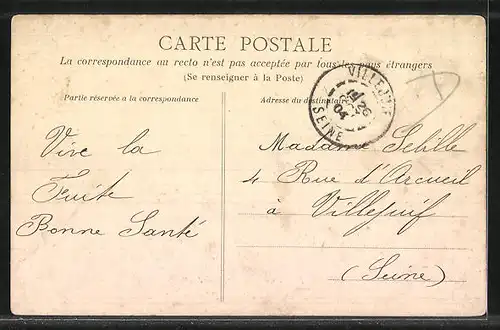 CARTE POSTALE
La correspondance au recto n'est pas acceptée par tous les pays étrangers
(Se renseigner à la Poste)
Partie réservée a la correspondance
Adresse du destinataire
VILLEJUIF
26
04
SEINE
Vive la
Fuite
Bonne Santé
Madame
4 Rue d'Arcueil
à Villejuif
(Seine)